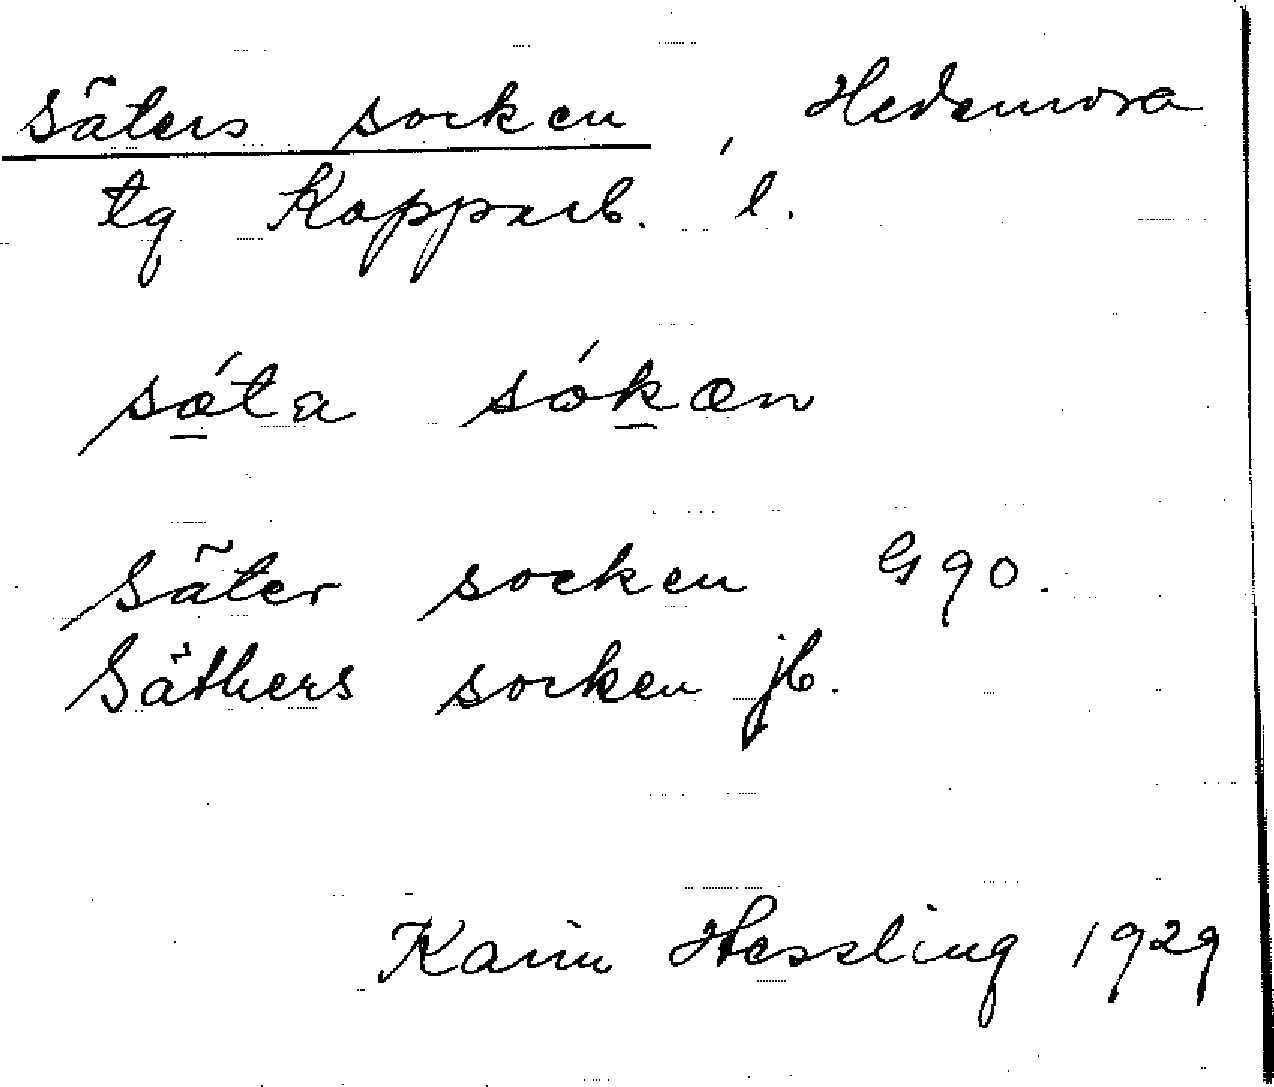 Säters socken, Hedemora
tg Kopparb. l.
sǿ̱ta sóḵæn
Säter socken G90.
Säthers socken jb.
Karin Hessling 1929